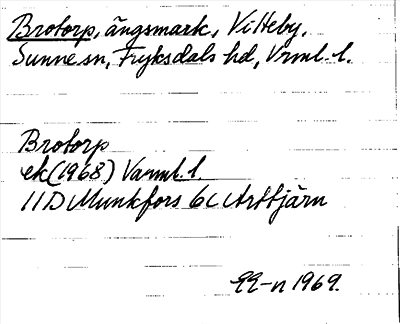 Brotorp, ängsmark, Vitteby,
Sunne sn, Fryksdals hd, Vrml. l.
Brotorp
ek (1968) Varml. l.
11D Munkfors 6c Arttjärn
EE-n 1969.